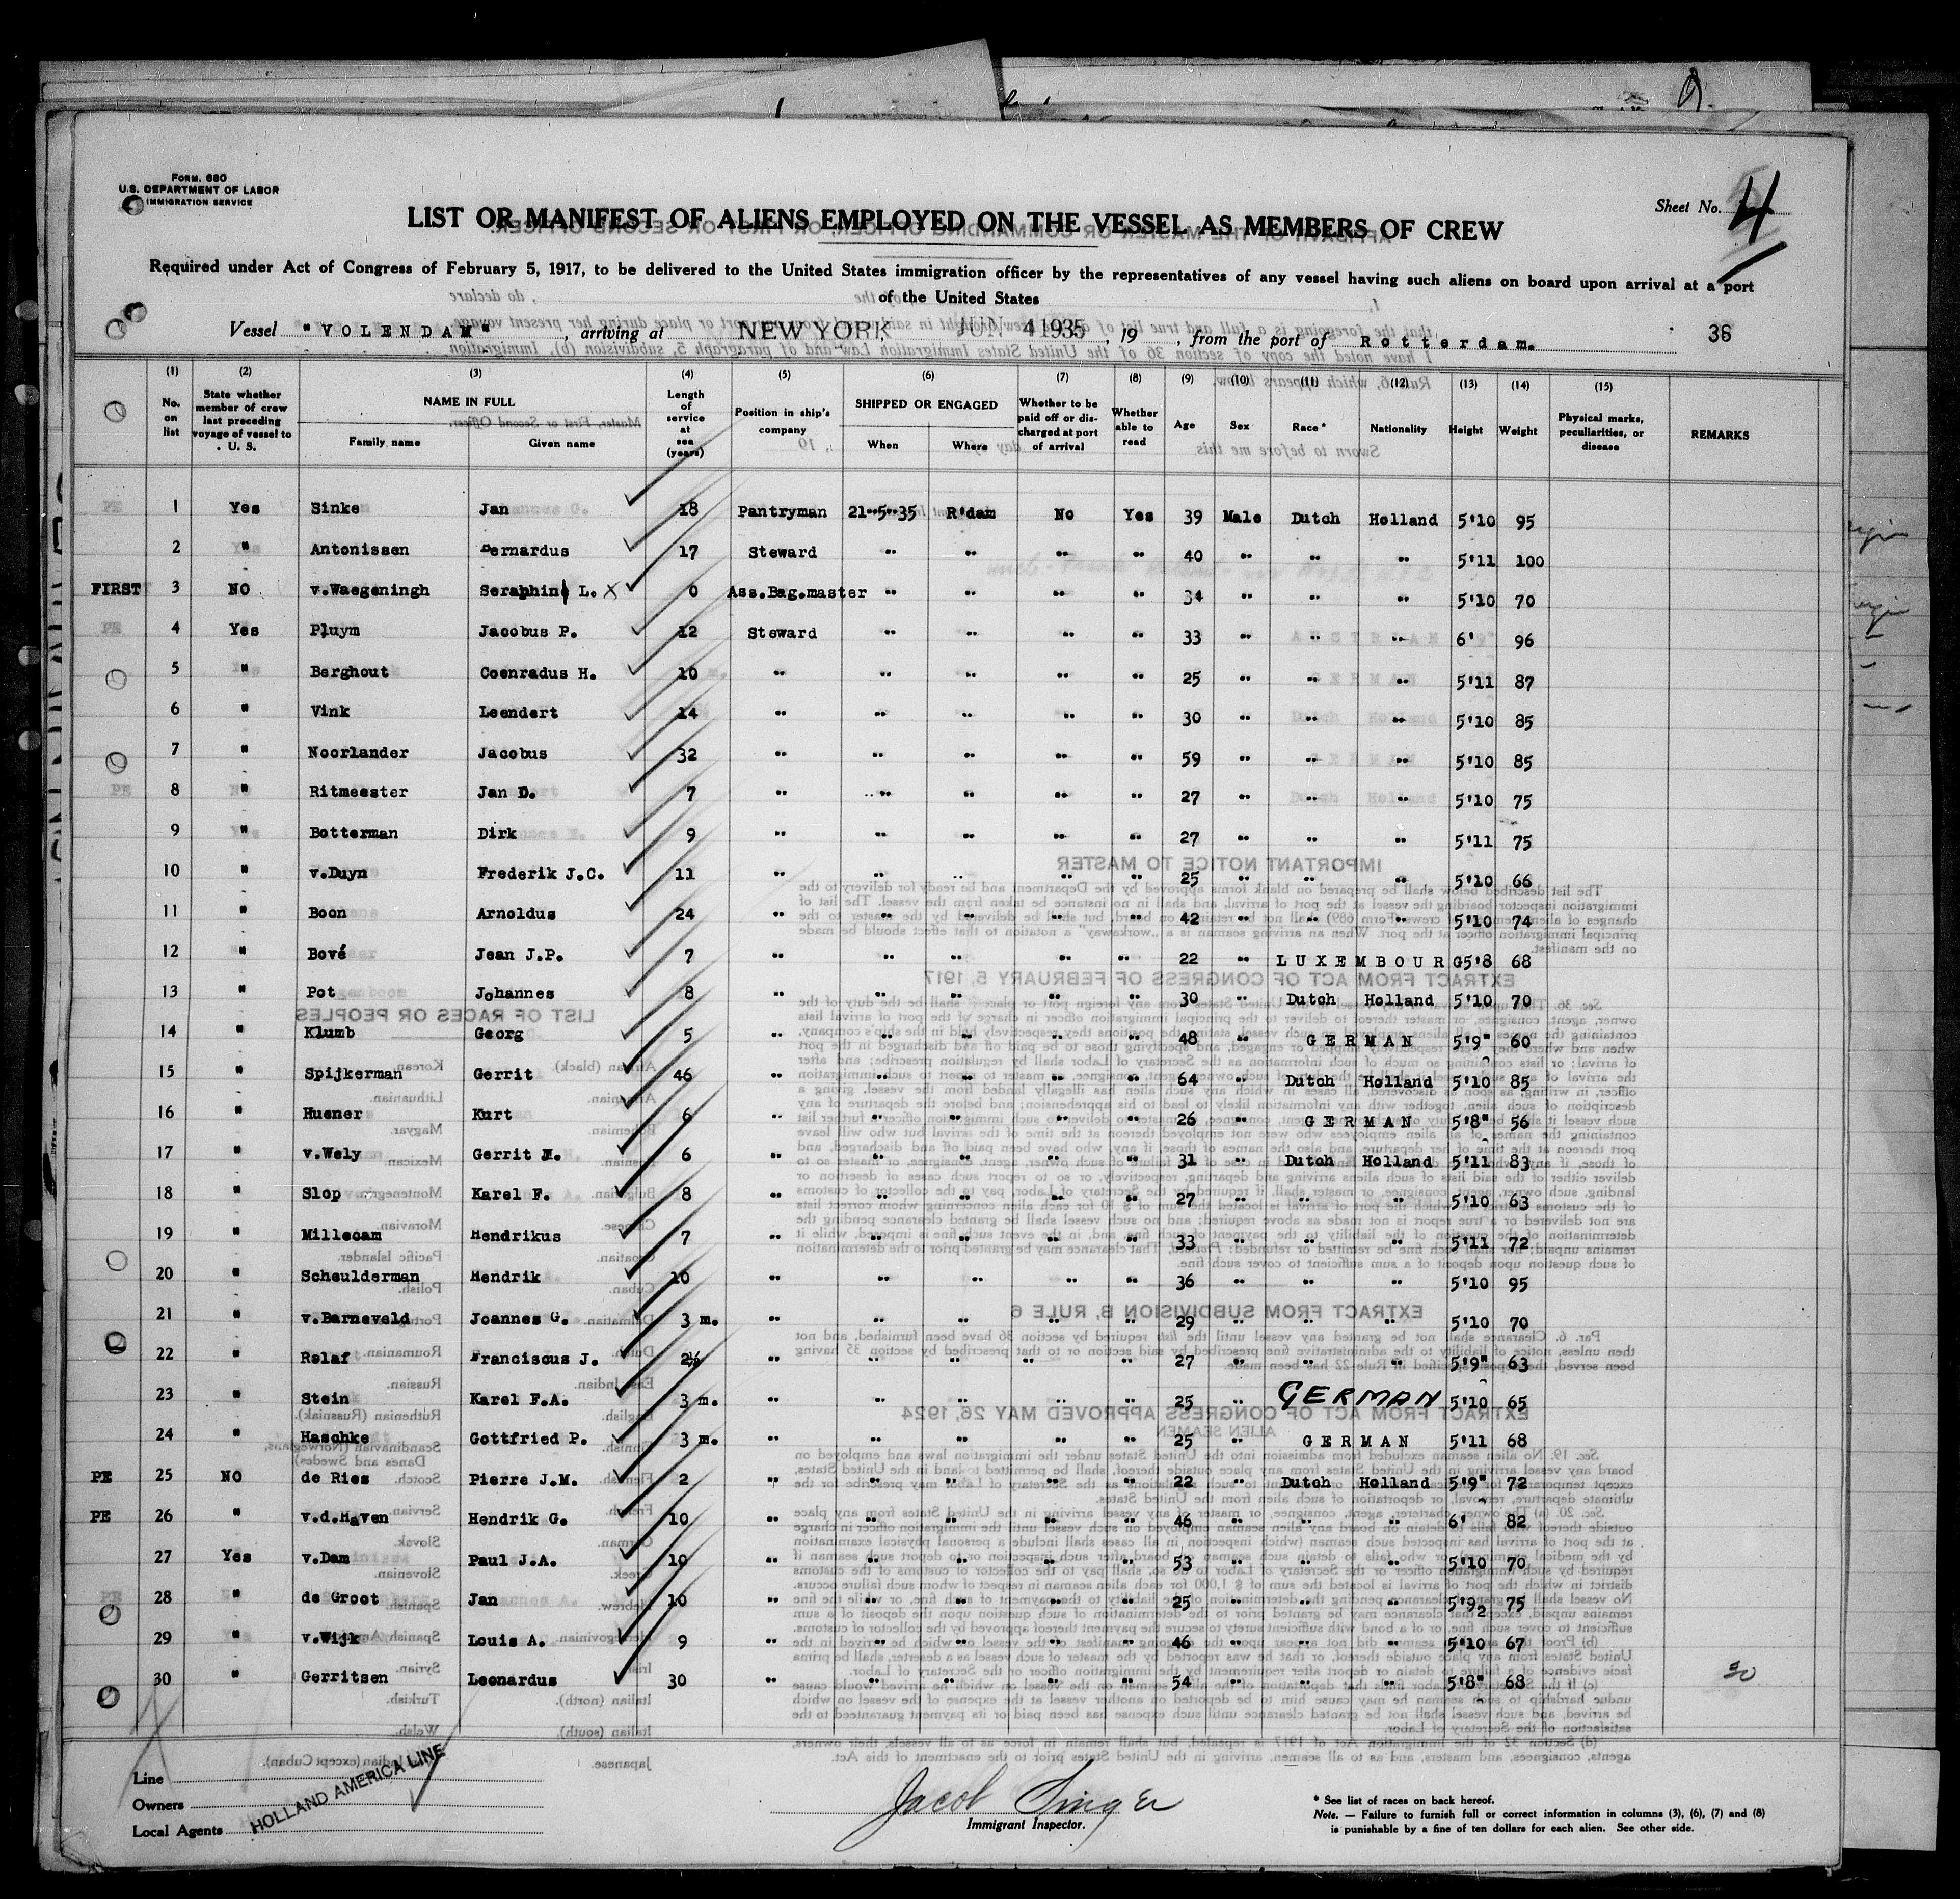 FORM. 680
U.S. DEPARTMENT OF LABOR
IMMIGRATION SERVICE
Sheet No. 4
LIST OR MANIFEST OF ALIENS EMPLOYED ON THE VESSEL AS MEMBERS OF CREW
Required under Act of Congress of February 5, 1917, to be delivered to the United States immigration officer by the representatives of any vessel having such aliens on board upon arrival at a port
of the United States
Vessel "VOLENDAM", arriving at NEW YORK, JUN 4 1935, 19 , from the port of Rotterdam. 36
(1) (2) (3) (4) (5) (6) (7) (8) (9) (10) (11) (12) (13) (14) (15)
No. on list | State whether member of crew last preceding voyage of vessel to U. S. | NAME IN FULL Family name Given name | Length of service at sea (years) | Position in ship's company | SHIPPED OR ENGAGED When Where | Whether to be paid off or discharged at port of arrival | Whether able to read | Age | Sex | Race* | Nationality | Height | Weight | Physical marks, peculiarities, or disease | REMARKS
1 Yes Sinke Jan 18 Pantryman 21-5-35 R'dam No Yes 39 Male Dutch Holland 5'10 95
2 " Antonissen Bernardus 17 Steward " " " " 40 " " " 5'11 100
FIRST 3 NO v.Waegeningh Seraphin L. X 0 Ass.Bag.master " " " " 34 " " " 5'10 70
4 Yes Pluym Jacobus P. 12 Steward " " " " 33 " " " 6' 96
5 " Berghout Coenradus H. 10 " " " " " 25 " " " 5'11 87
6 " Vink Leendert 14 " " " " " 30 " " " 5'10 85
7 " Noorlander Jacobus 32 " " " " " 59 " " " 5'10 85
8 " Ritmeester Jan D. 7 " " " " " 27 " " " 5'10 75
9 " Botterman Dirk 9 " " " " " 27 " " " 5'11 75
10 " v.Duyn Frederik J.C. 11 " " " " " 25 " " " 5'10 66
11 " Boon Arnoldus 24 " " " " " 42 " " " 5'10 74
12 " Bové Jean J.P. 7 " " " " " 22 " LUXEMBOURG 5'8 68
13 " Pot Johannes 8 " " " " " 30 " Dutch Holland 5'10 70
14 " Klumb Georg 5 " " " " " 48 " GERMAN 5'9" 60
15 " Spijkerman Gerrit 46 " " " " " 64 " Dutch Holland 5'10 85
16 " Huener Kurt 6 " " " " " 26 " GERMAN 5'8" 56
17 " v.Wely Gerrit 6 " " " " " 31 " Dutch Holland 5'11 83
18 " Slop Karel F. 8 " " " " " 27 " " " 5'10 63
19 " Millecam Hendrikus 7 " " " " " 33 " " " 5'11 72
20 " Scheulderman Hendrik 10 " " " " " 36 " " " 5'10 95
21 " v.Barneveld Joannes G. 3 m. " " " " " 29 " " " 5'10 70
22 " Relaf Franciscus J. 2½ " " " " " 27 " " " 5'9" 63
23 " Stein Karel F.A. 3 m. " " " " " 25 " GERMAN 5'10 65
24 " Haschke Gottfried P. 3 m. " " " " " 25 " GERMAN 5'11 68
PE 25 NO de Ries Pierre J.M. 2 " " " " " 22 " Dutch Holland 5'9" 72
PE 26 " v.d.Haven Hendrik G. 10 " " " " " 46 " " " 6' 82
27 Yes v.Dam Paul J.A. 10 " " " " " 53 " " " 5'10 70
28 " de Groot Jan 10 " " " " " 25 " " " 5'9 75
29 " v.Wijk Louis A. 9 " " " " " 46 " " " 5'10 67
30 " Gerritsen Leonardus 30 " " " " " 54 " " " 5'8" 68 30
Line
Owners
Local Agents
HOLLAND AMERICA LINE
Jacob Singer
Immigrant Inspector.
* See list of races on back hereof.
Note. — Failure to furnish full or correct information in columns (3), (6), (7) and (8)
is punishable by a fine of ten dollars for each alien. See other side.